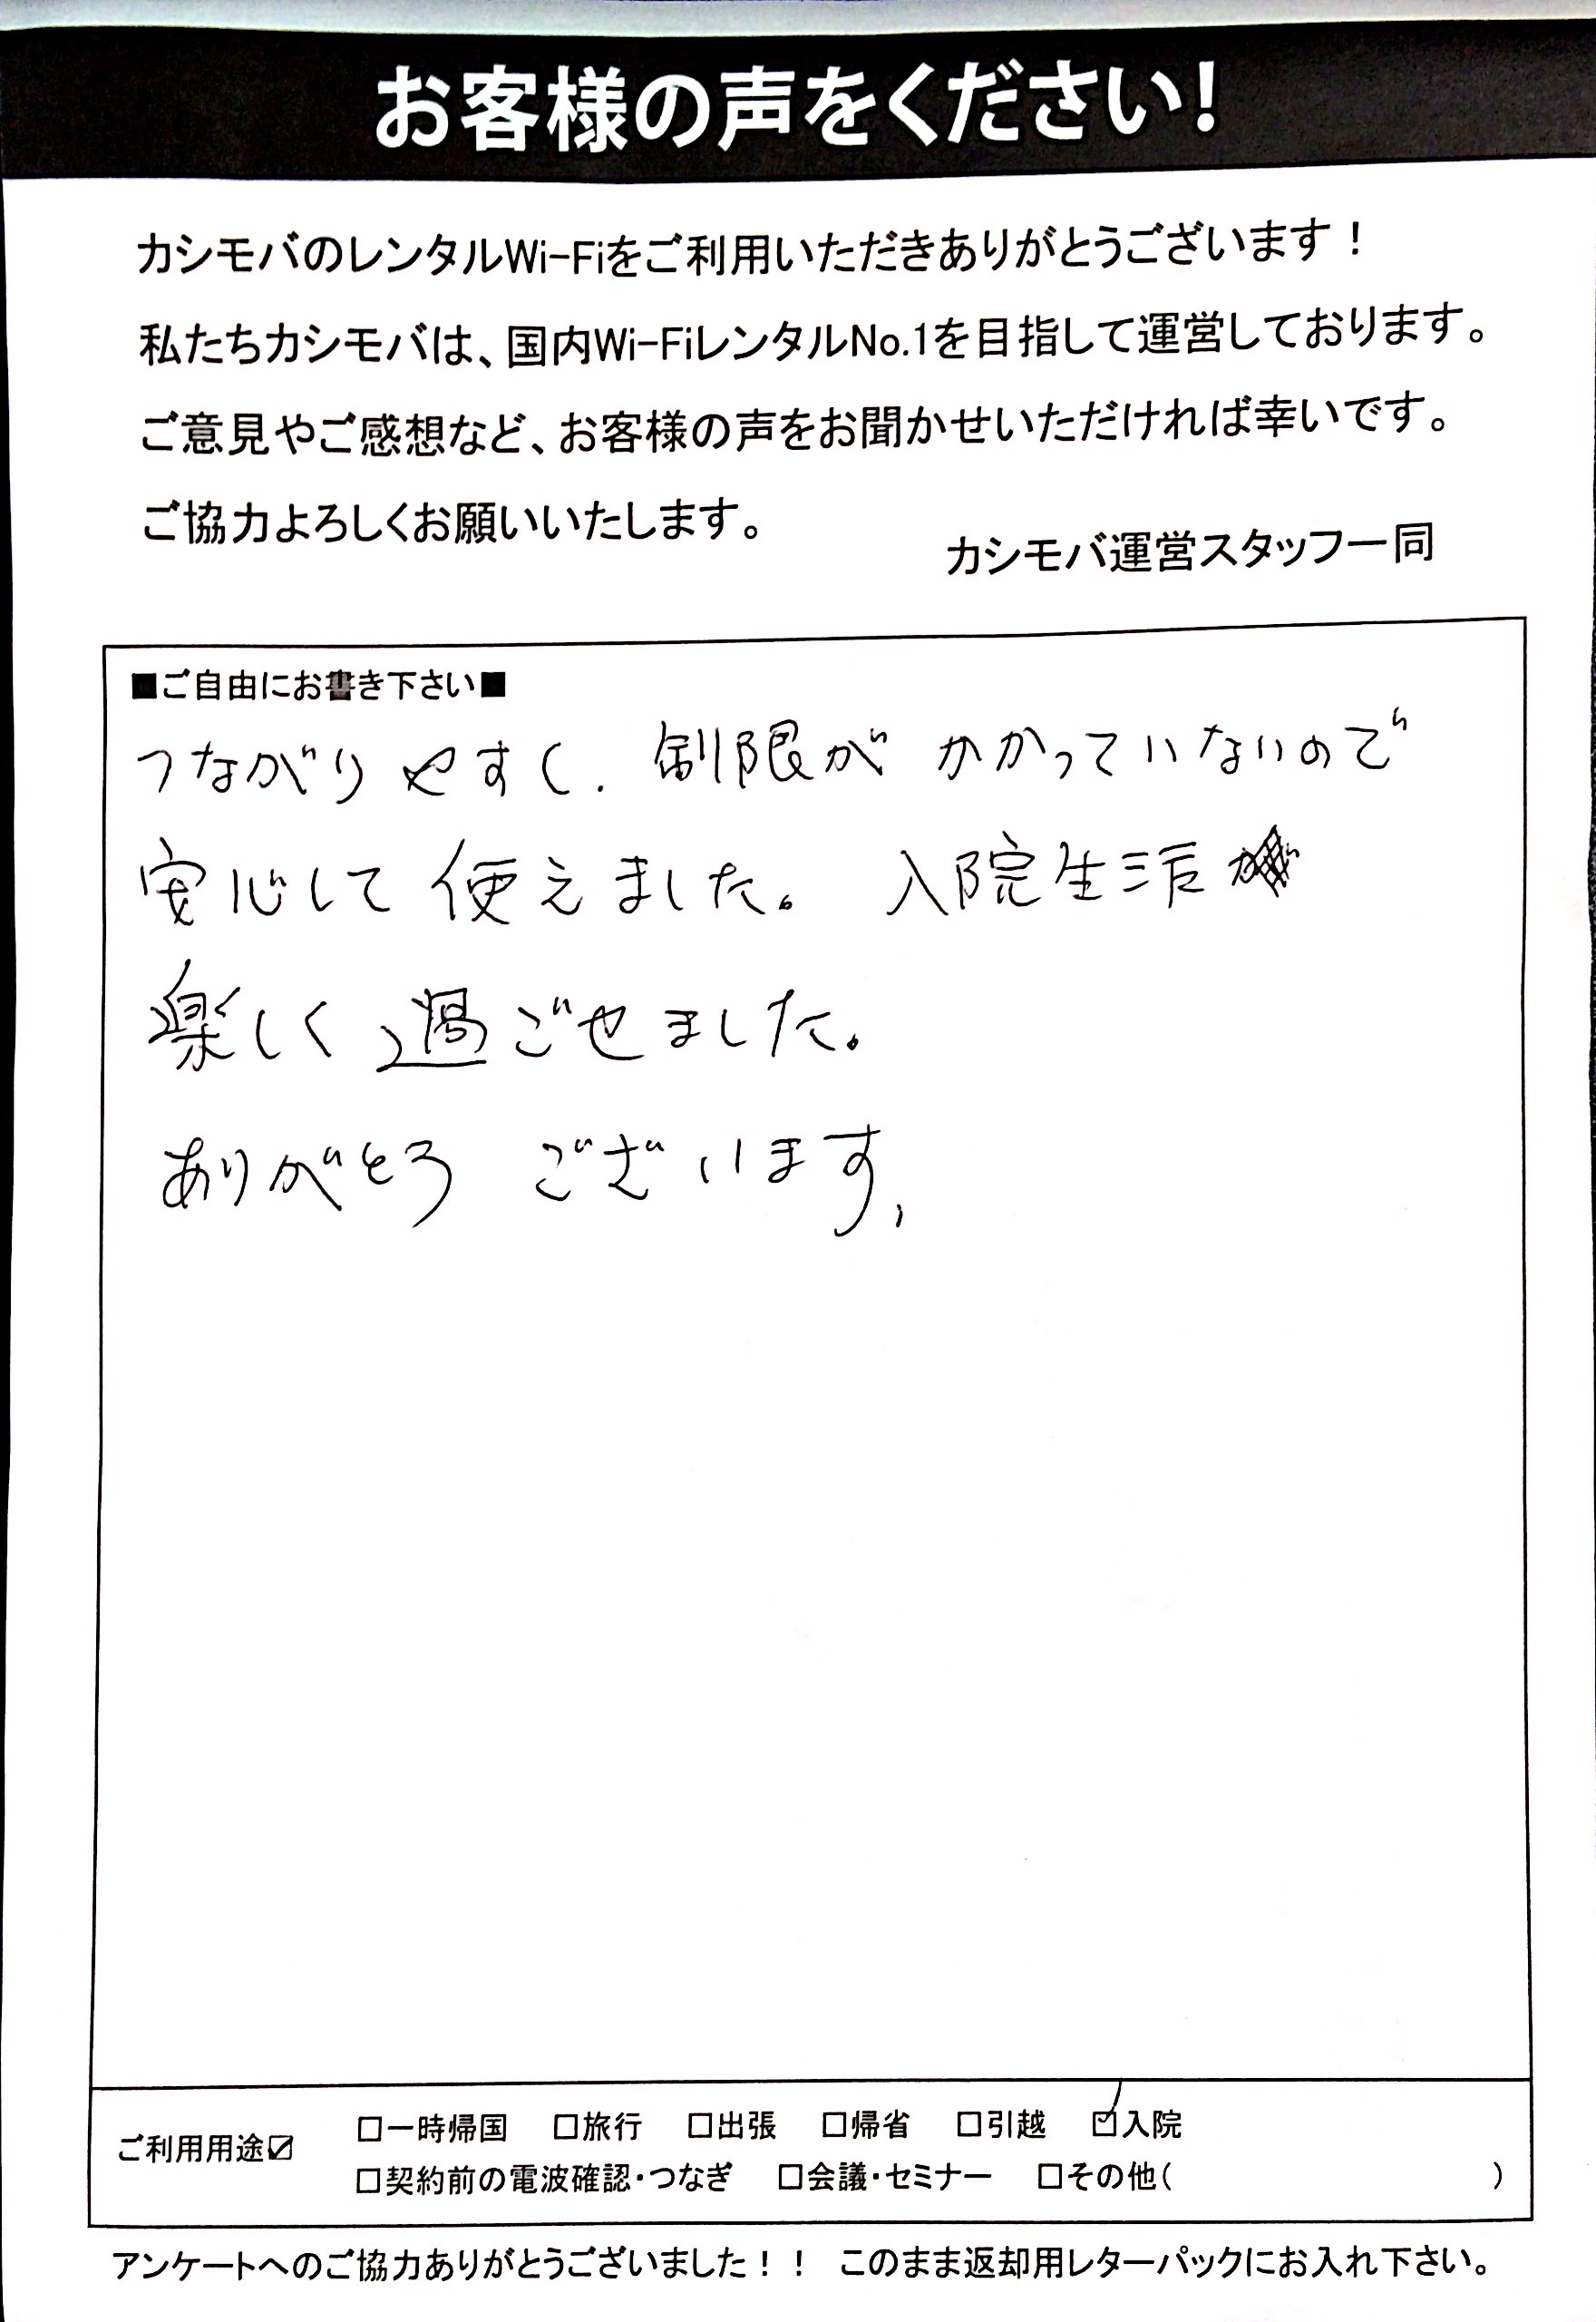 お客様の声をください!
カシモバのレンタルWi-Fiをご利用いただきありがとうございます！
私たちカシモバは、国内Wi-FiレンタルNo.1を目指して運営しております。
ご意見やご感想など、お客様の声をお聞かせいただければ幸いです。
ご協力よろしくお願いいたします。
カシモバ運営スタッフ一同
■ご自由にお書き下さい■
つながりやすく、制限がかかっていないので
安心して使えました。入院生活
楽しく過ごせました。
ありがとうございます。
ご利用用途☑ □一時帰国 □旅行 □出張 □帰省 □引越 ☑入院
□契約前の電波確認・つなぎ □会議・セミナー □その他( )
アンケートへのご協力ありがとうございました！！ このまま返却用レターパックにお入れ下さい。